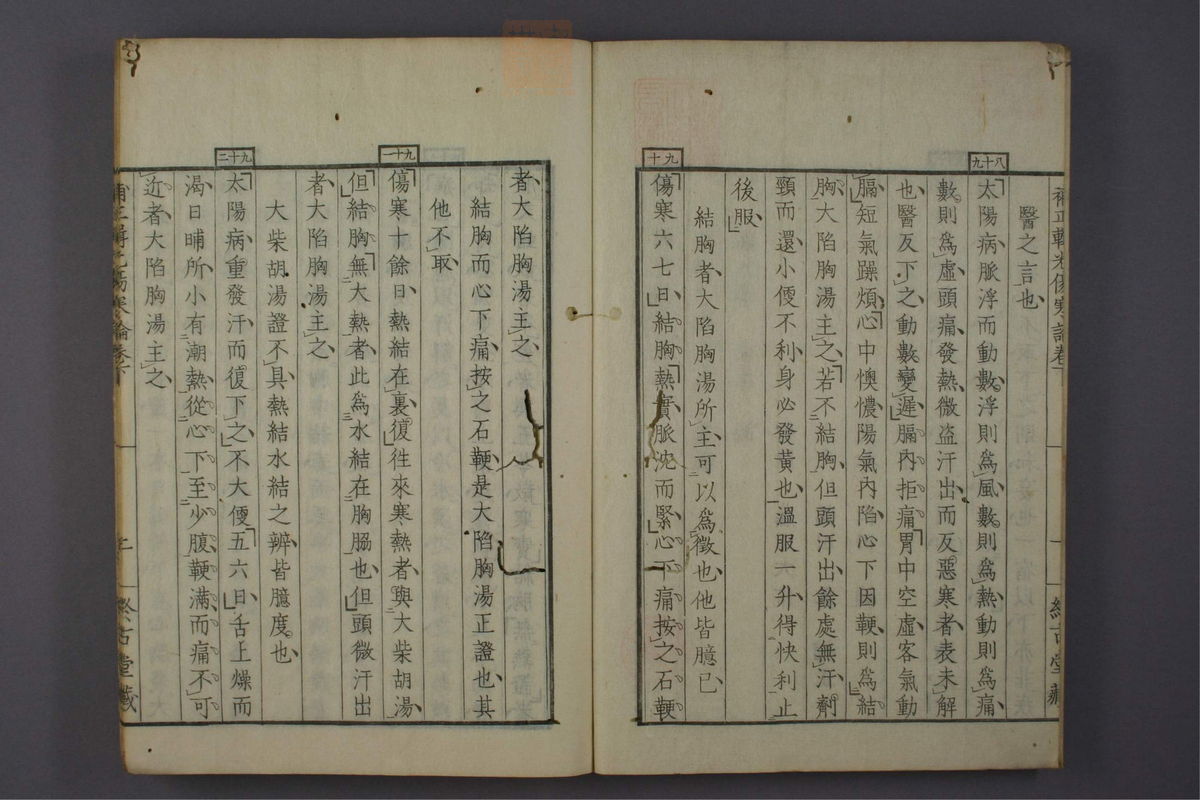 補正輯光傷寒論卷下
醫之言也
八十九
太陽病脈浮而動數浮則為風數則為熱動則為痛
數則為虛頭痛發熱微盜汗出而反惡寒者表未解
也醫反下之動數變遲膈內拒痛胃中空虛客氣動
膈短氣躁煩心中懊憹陽氣內陷心下因鞕則為結
胸大陷胸湯主之若不結胸但頭汗出餘處無汗劑
頸而還小便不利身必發黃也溫服一升得快利止
後服
結胸者大陷胸湯所主可以為徵也他皆臆已
九十
傷寒六七日結胸熱實脈沈而緊心下痛按之石鞕
者大陷胸湯主之
結胸而心下痛按之石鞕是大陷胸湯正證也其
他不取
九十一
傷寒十餘日熱結在裏復往來寒熱者與大柴胡湯
但結胸無大熱者此為水結在胸脇也但頭微汗出
者大陷胸湯主之
大柴胡湯證不具熱結水結之辨皆臆度也
九十二
太陽病重發汗而復下之不大便五六日舌上燥而
渴日晡所小有潮熱從心下至少腹鞕滿而痛不可
近者大陷胸湯主之